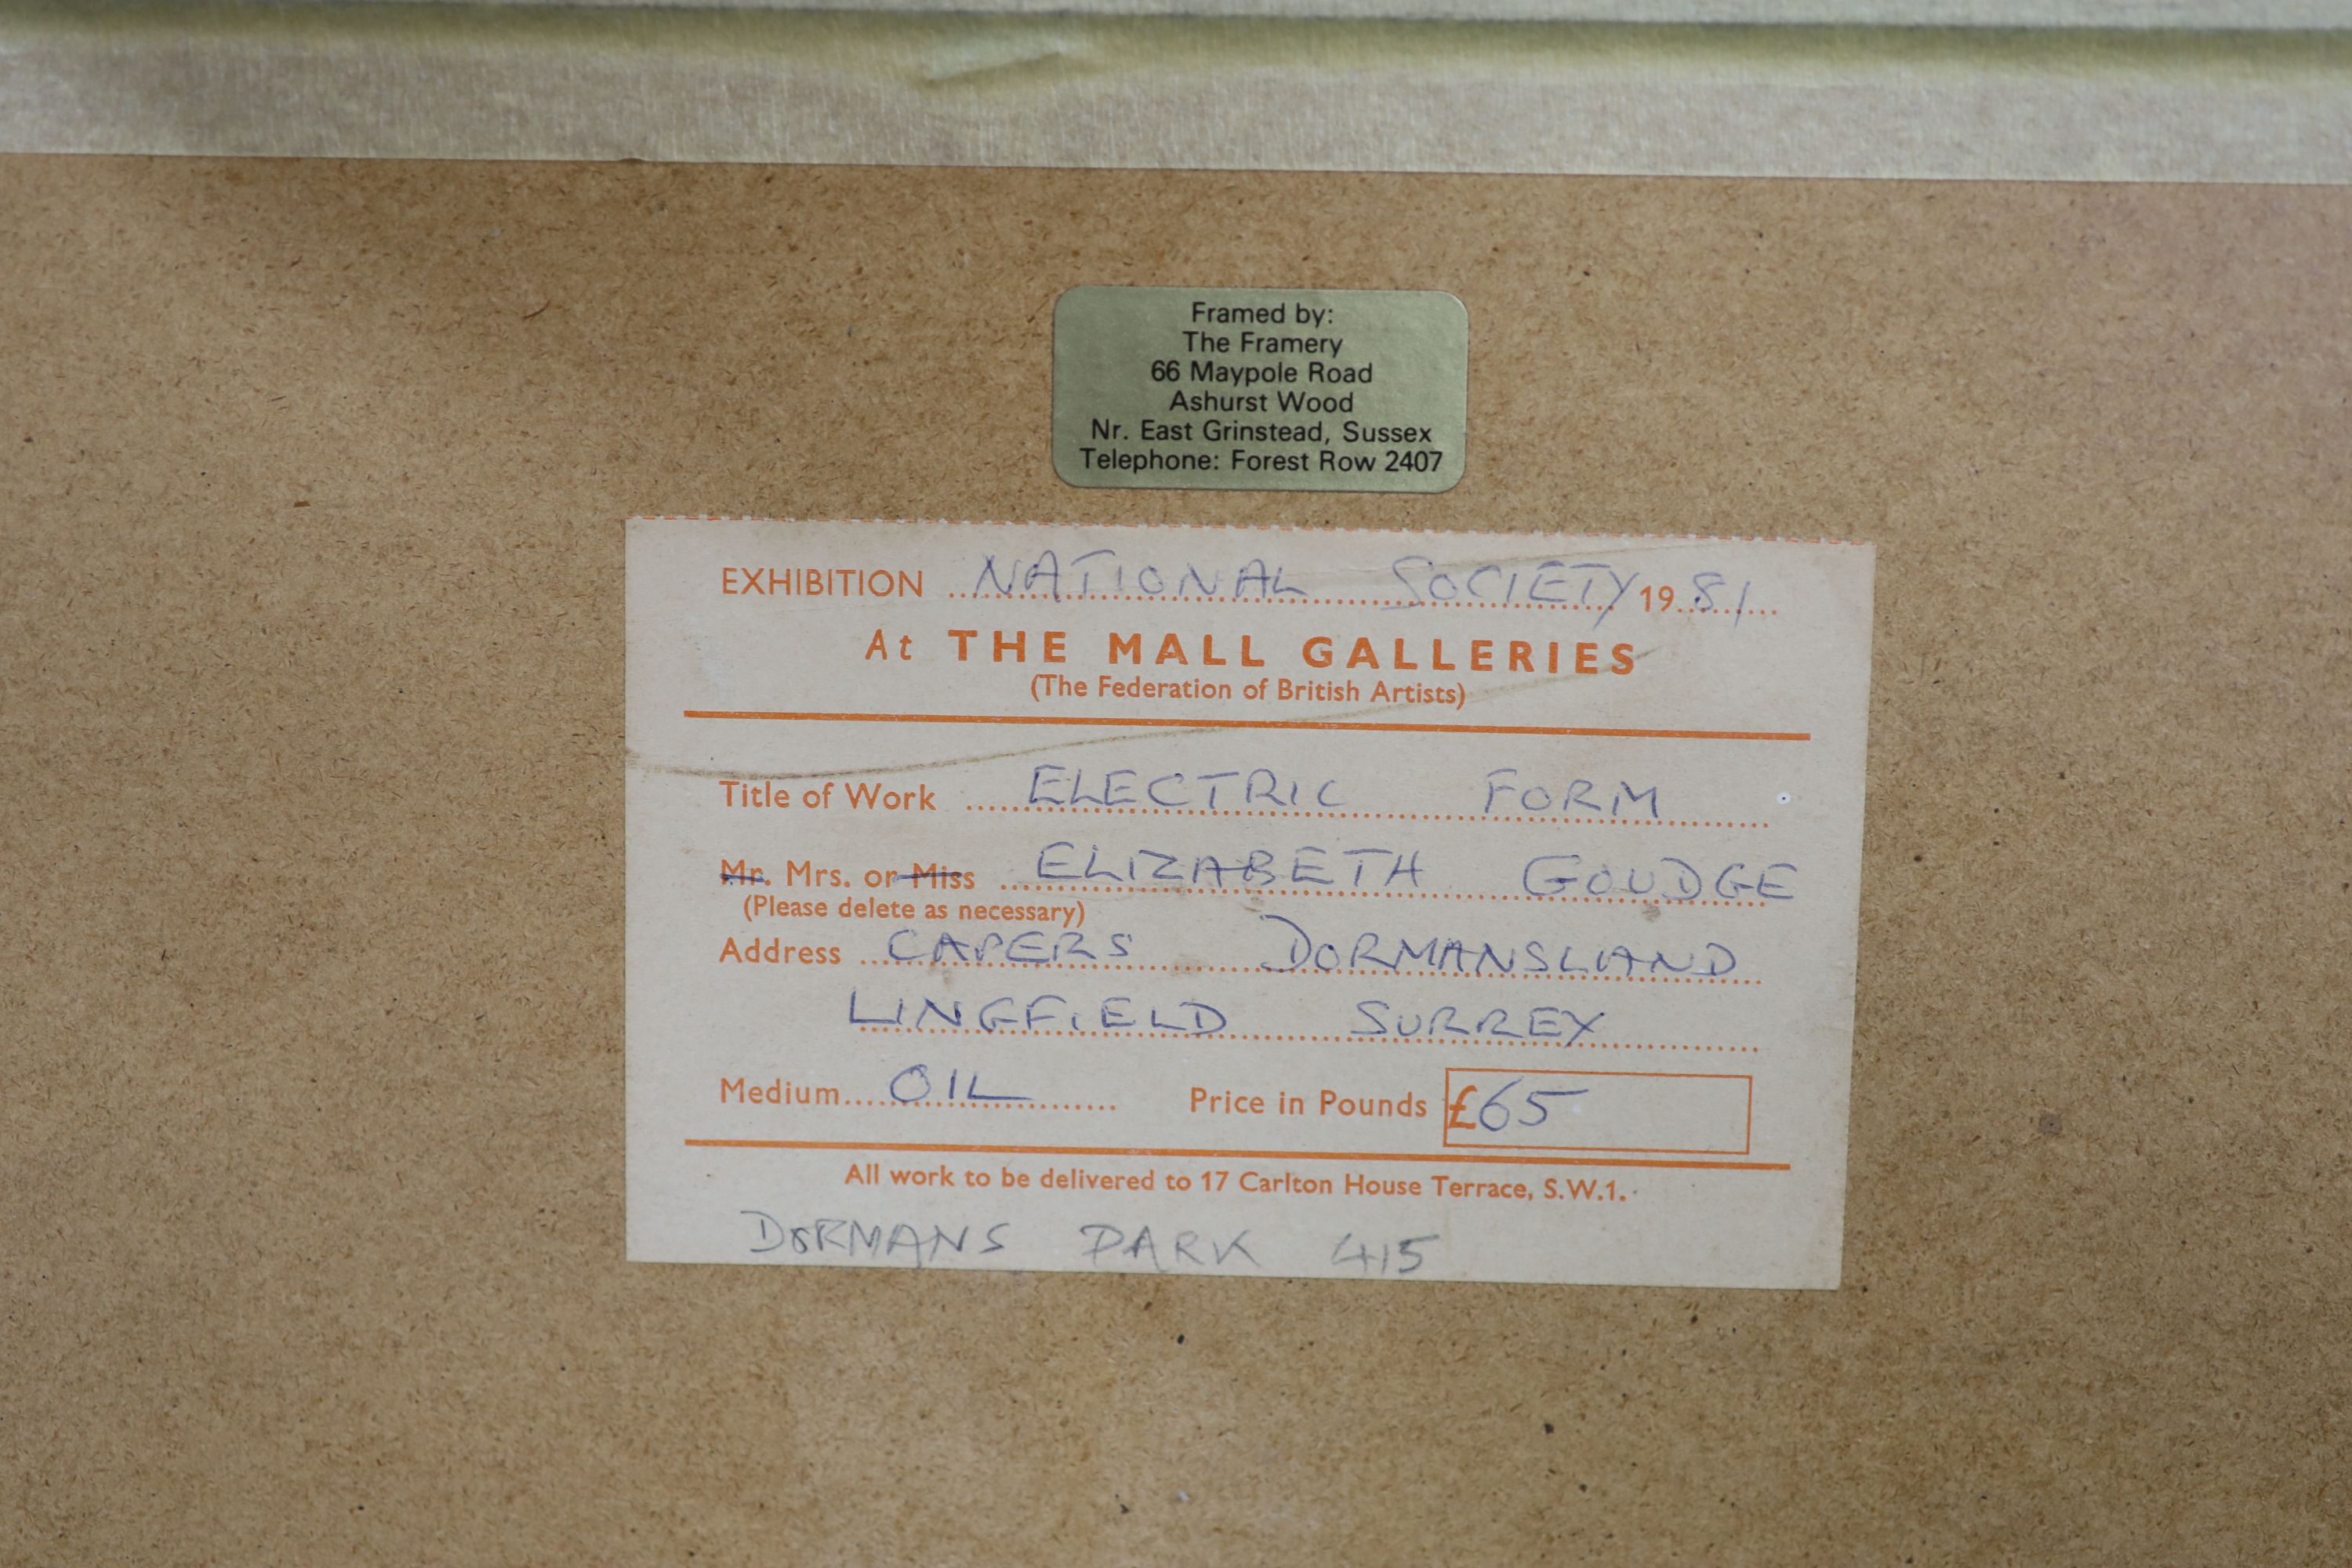 Framed by:
The Framery
66 Maypole Road
Ashurst Wood
Nr. East Grinstead, Sussex
Telephone: Forest Row 2407
EXHIBITION NATIONAL SOCIETY 1981
At THE MALL GALLERIES
(The Federation of British Artists)
Title of Work ELECTRIC FORM
Mr. Mrs. or Miss ELIZABETH GOUDGE
(Please delete as necessary)
Address CAPERS DORMANSLAND
LINGFIELD SURREY
Medium OIL Price in Pounds £65
All work to be delivered to 17 Carlton House Terrace, S.W.1.
DORMANS PARK 415